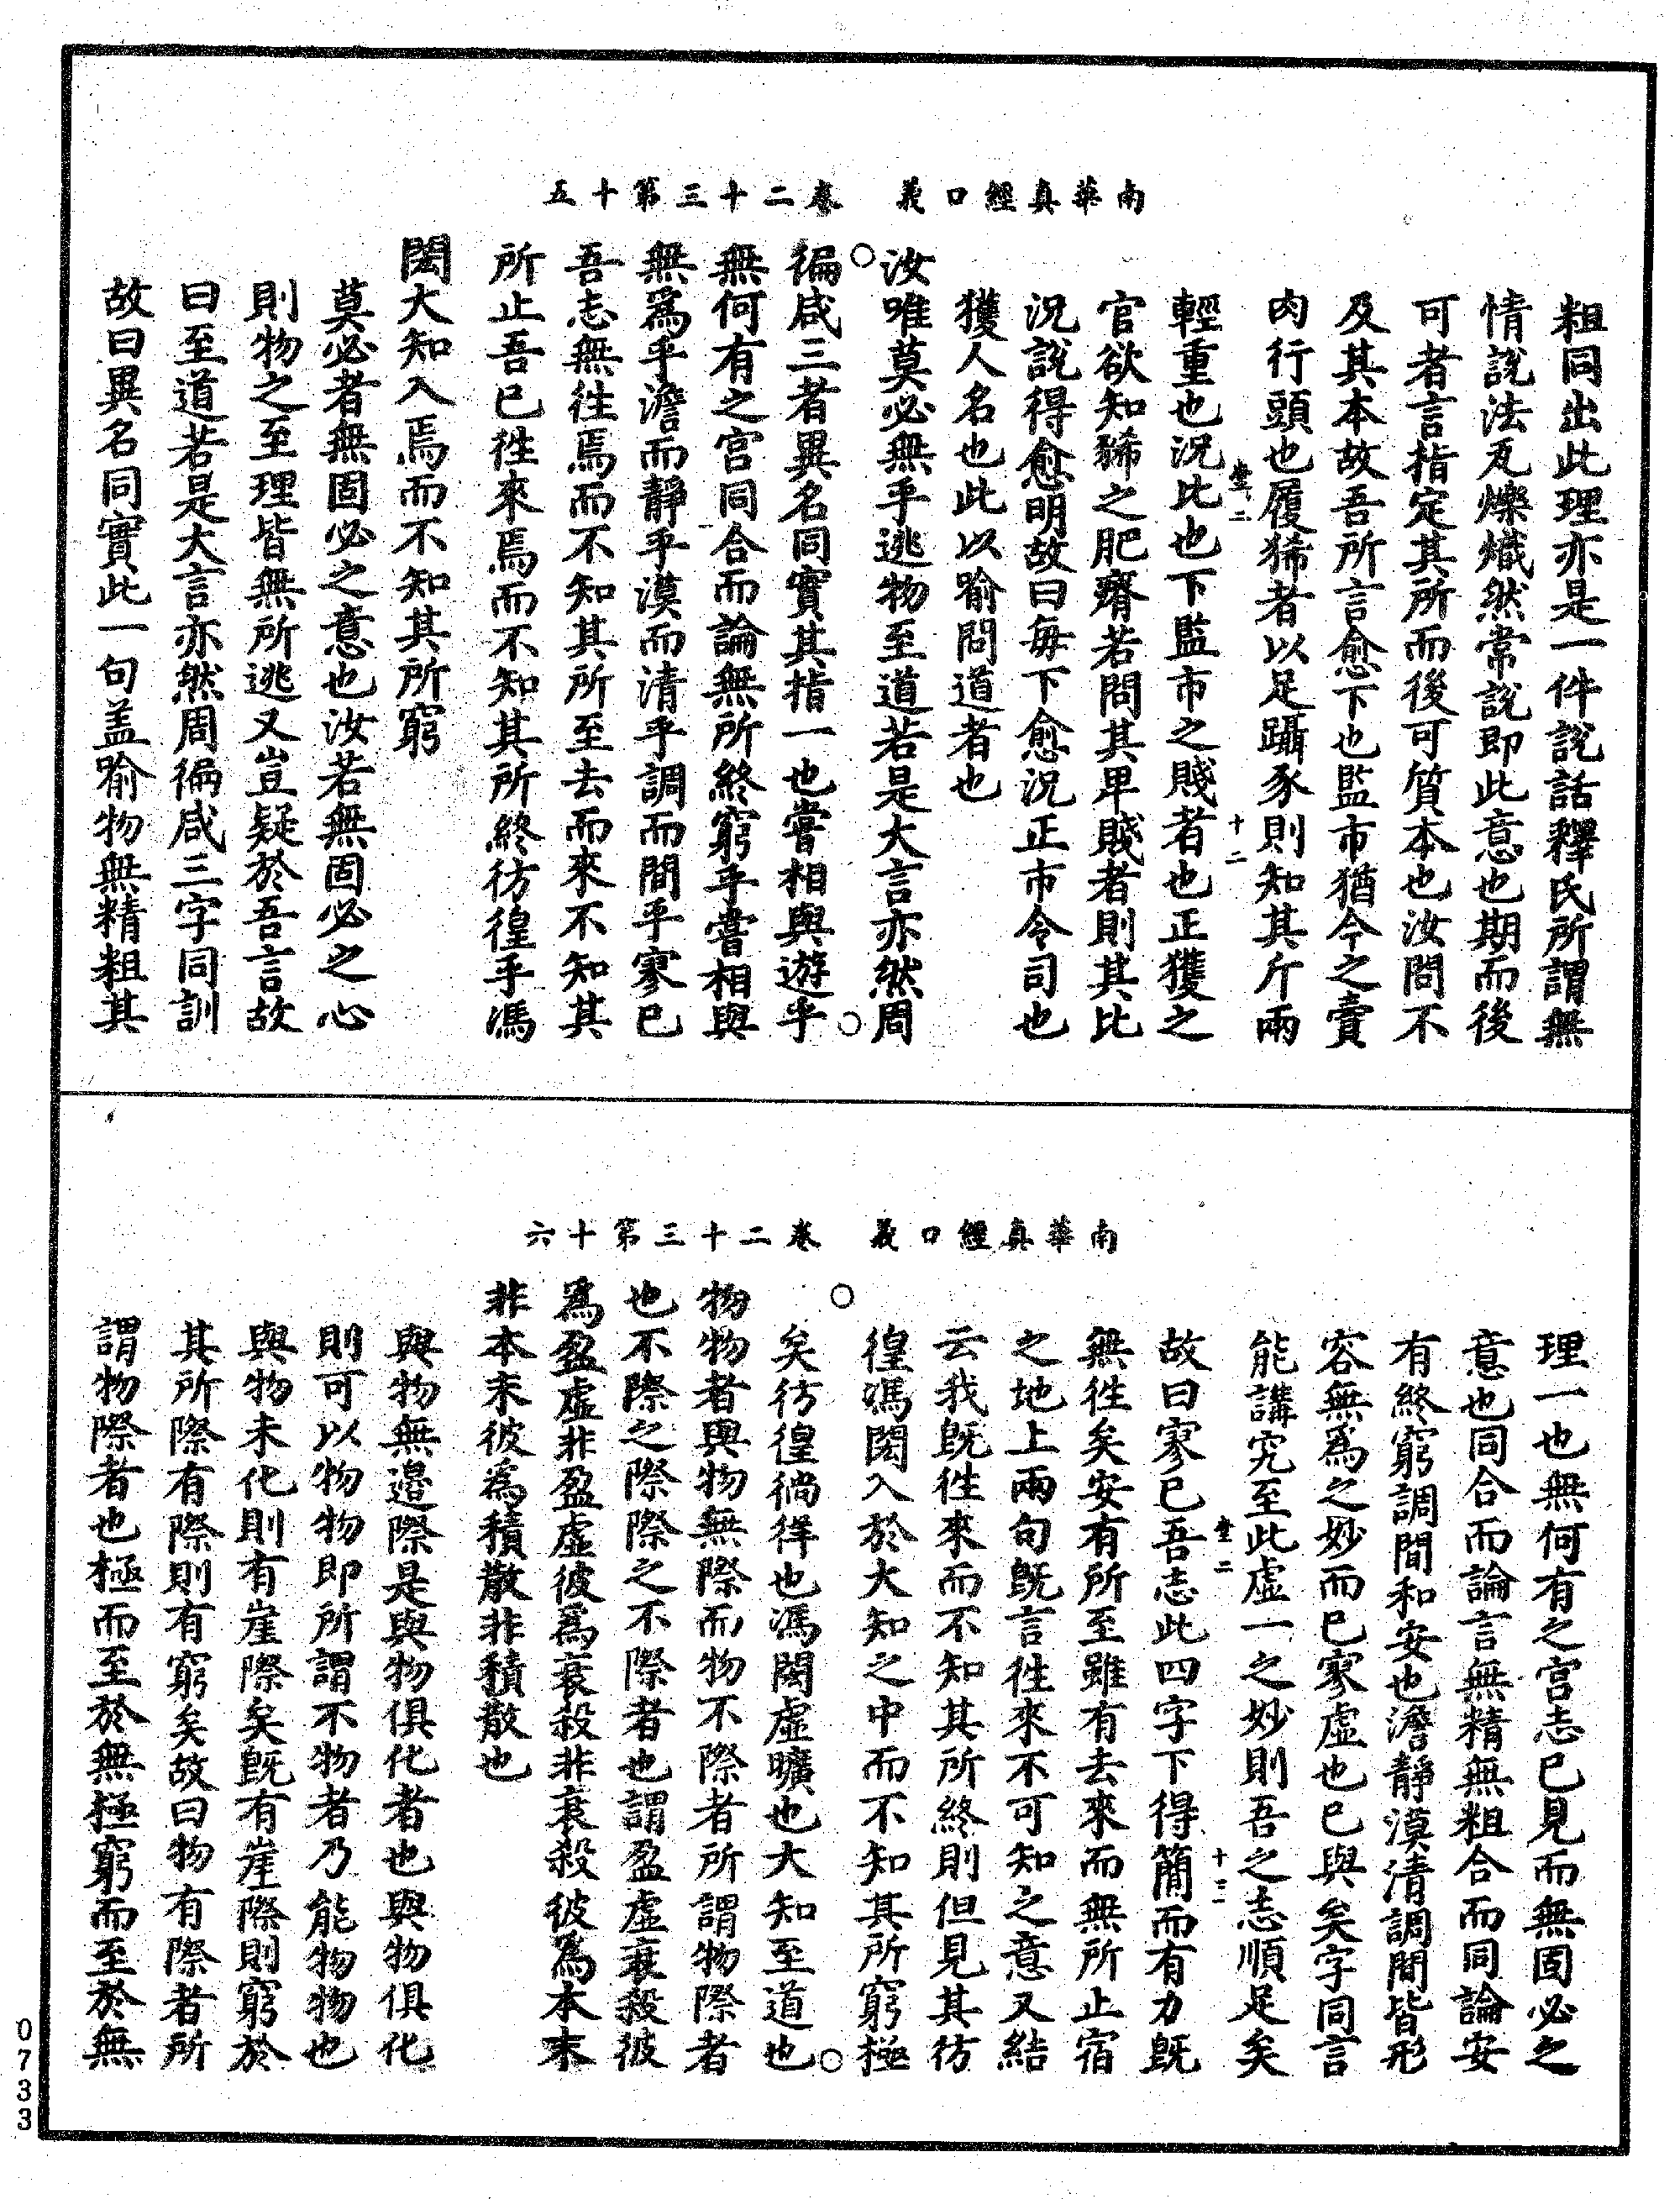 南華真經口義　卷二十三第十五
粗同出此理亦是一件說話釋氏所謂無
情說法瓦爍熾然常說即此意也期而後
可者言指定其所而後可質本也汝問不
及其本故吾所言愈下也監市猶今之賣
肉行頭也履狶者以足躡豕則知其斤兩
坐二　十二
輕重也況比也下監市之賤者也正獲之
官欲知豨之肥瘠若問其卑賤者則其比
況說得愈明故曰每下愈況正市令司也
獲人名也此以喻問道者也
汝唯莫必無乎逃物至道若是大言亦然周
徧咸三者異名同實其指一也嘗相與遊乎
無何有之宮同合而論無所終窮乎嘗相與
無爲乎澹而靜乎漠而清乎調而間乎寥已
吾志無往焉而不知其所至去而來不知其
所止吾已徃來焉而不知其所終彷徨乎馮
閎大知入焉而不知其所窮
莫必者無固必之意也汝若無固必之心
則物之至理皆無所逃又豈疑於吾言故
曰至道若是大言亦然周徧咸三字同訓
故曰異名同實此一句盖喻物無精粗其
南華真經口義　卷二十三第十六
理一也無何有之宮志已見而無固必之
意也同合而論言無精無粗合而同論安
有終窮調間和安也澹靜漠清調間皆形
容無爲之妙而已寥虛也已與矣字同言
能講究至此虛一之妙則吾之志順足矣
坐二　十三
故曰寥已吾志此四字下得簡而有力旣
無徃矣安有所至雖有去來而無所止宿
之地上兩句旣言徃來不可知之意又結
云我旣徃來而不知其所終則但見其彷
徨馮閎入於大知之中而不知其所窮極
矣彷徨徜徉也馮閎虛曠也大知至道也
物物者與物無際而物不際者所謂物際者
也不際之際際之不際者也謂盈虛衰殺彼
爲盈虛非盈虛彼爲衰殺非衰殺彼爲本末
非本末彼爲積散非積散也
與物無邊際是與物俱化者也與物俱化
則可以物物即所謂不物者乃能物物也
與物未化則有崖際矣旣有崖際則窮於
其所際有際則有窮矣故曰物有際者所
謂物際者也極而至於無極窮而至於無
0733